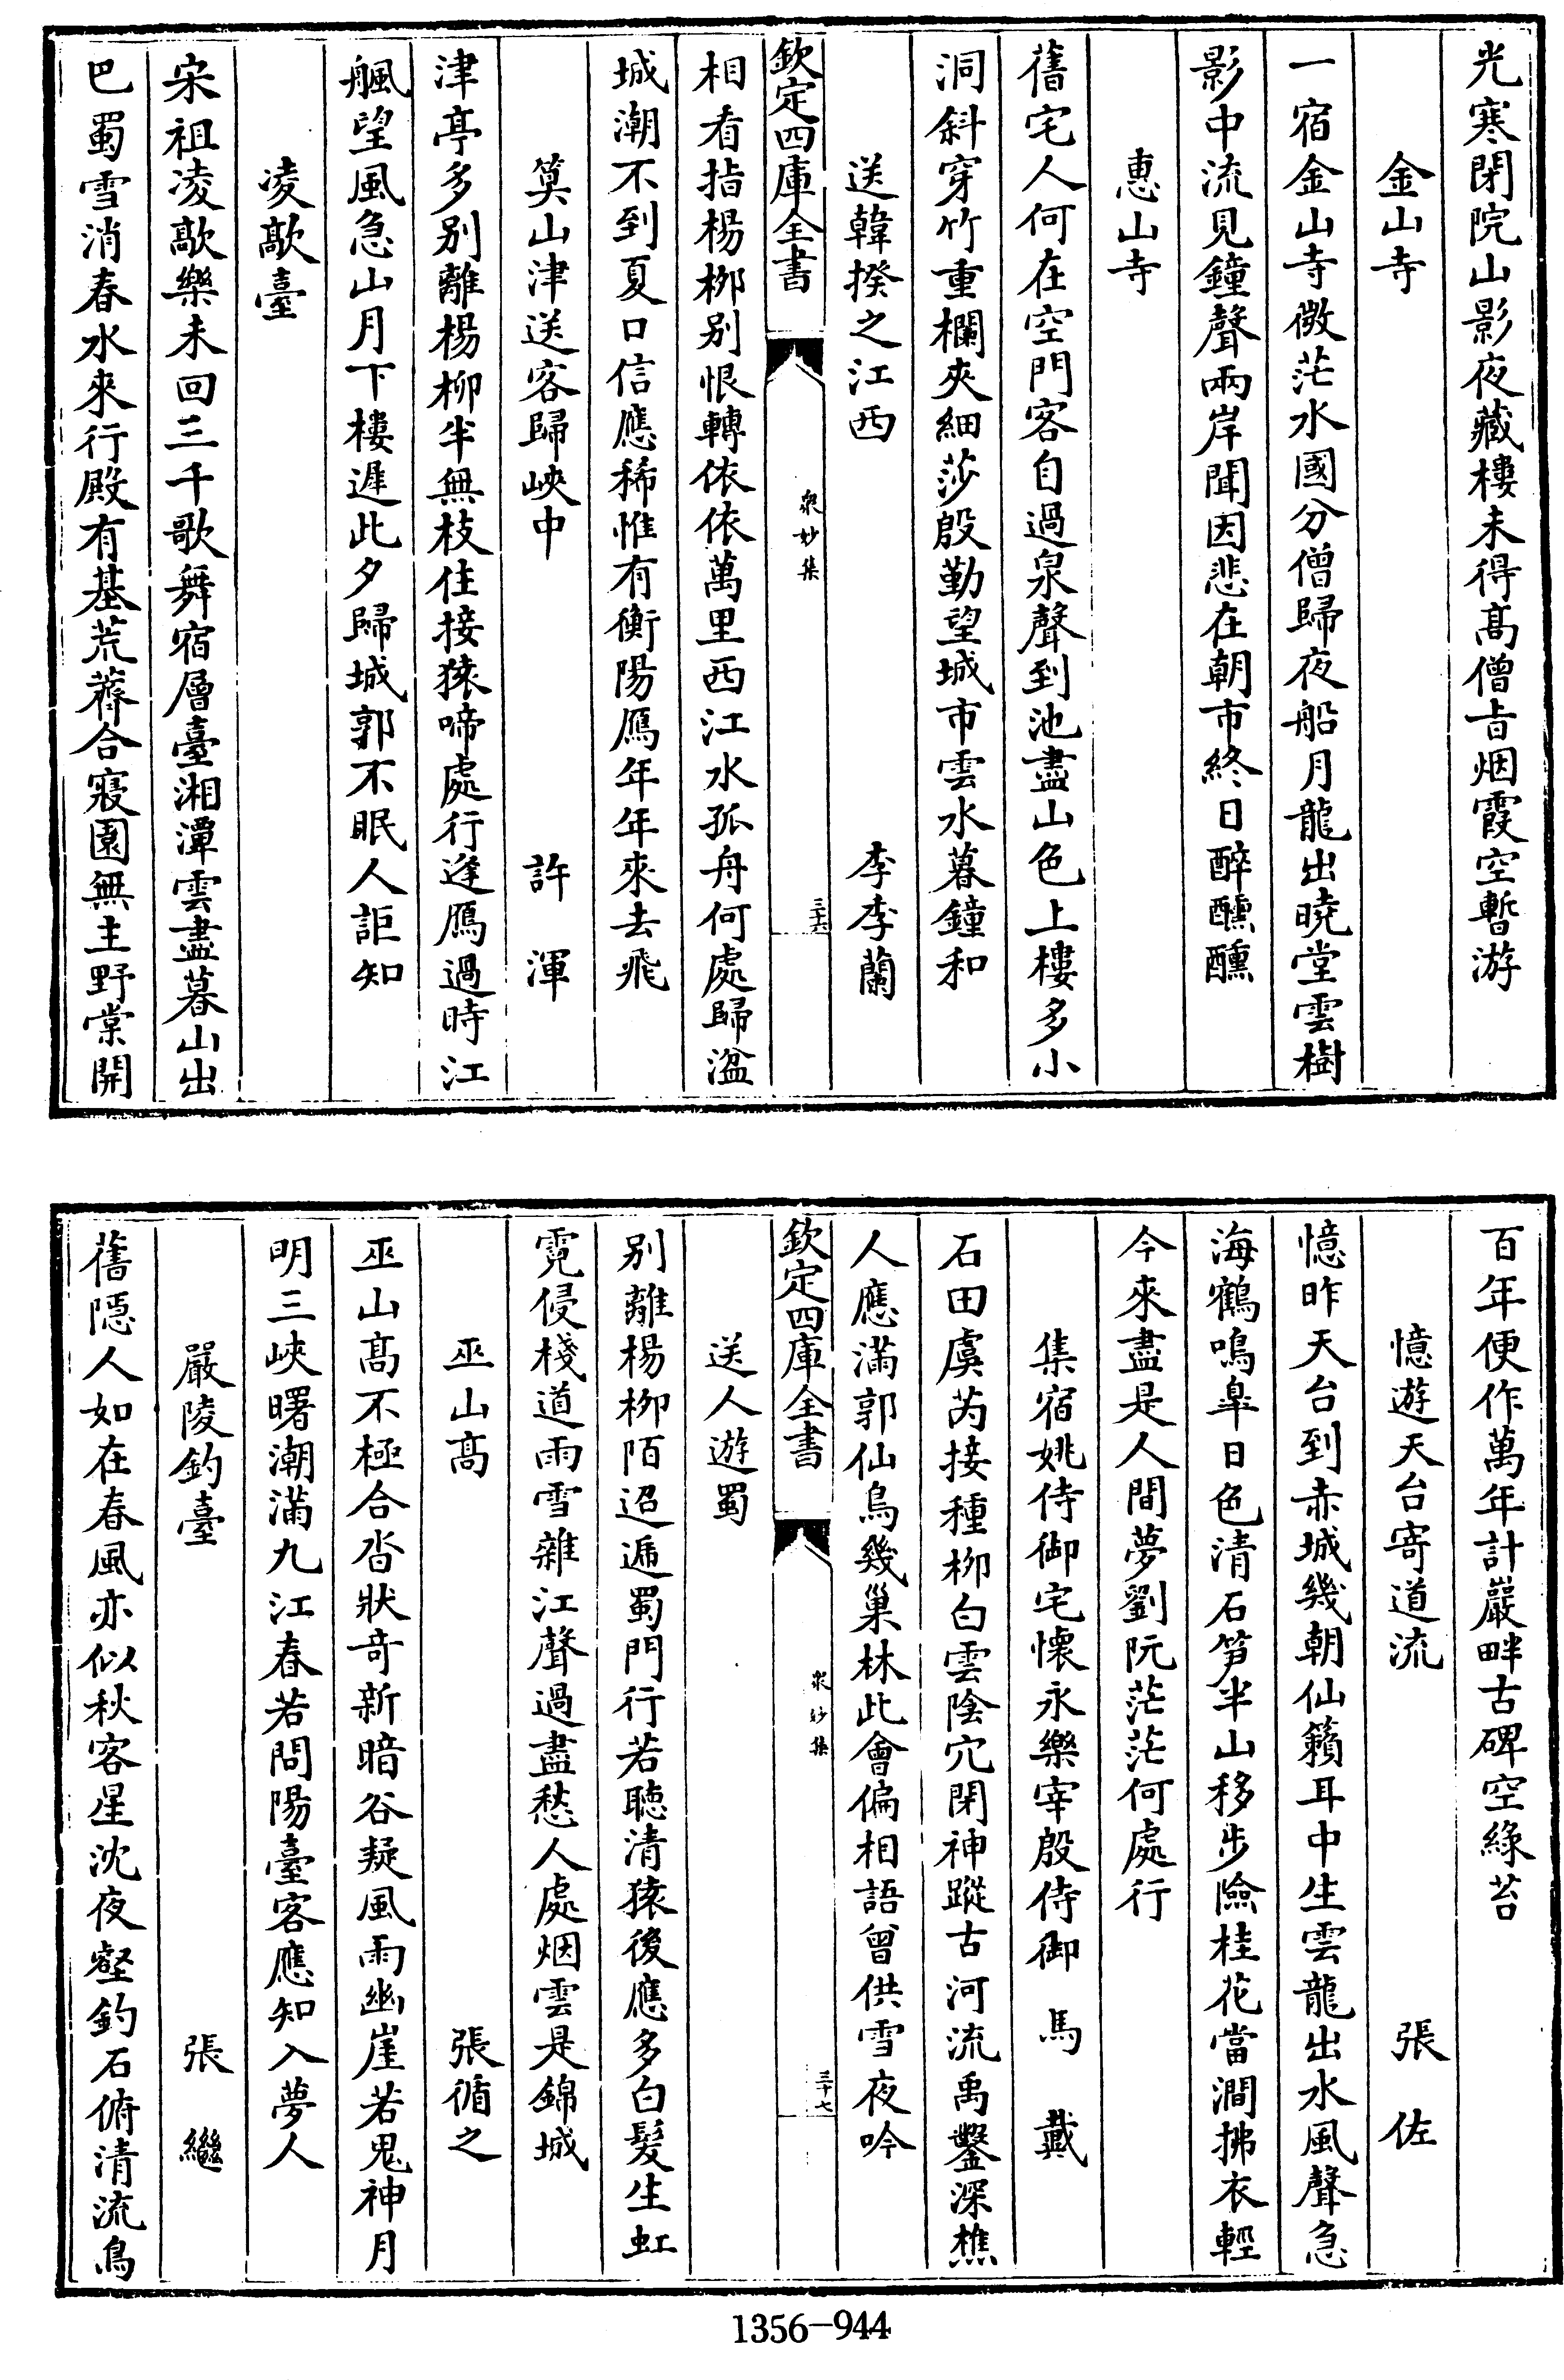 光寒閉院山影夜藏樓未得髙僧㫖烟霞空暫游
金山寺
一宿金山寺微茫水國分僧歸夜船月龍出曉堂雲樹
影中流見鐘聲兩岸聞因悲在朝市終日醉醺醺
惠山寺
舊宅人何在空門客自過泉聲到池盡山色上樓多小
洞斜穿竹重欄夾細莎殷勤望城市雲水暮鐘和
送韓揆之江西 李季蘭
相看指楊栁别恨轉依依萬里西江水孤舟何處歸湓
欽定四庫全書 衆妙集 三十六
城潮不到夏口信應稀惟有衡陽鴈年年來去飛
筼山津送客歸峽中 許渾
津亭多别離楊柳半無枝住接猿啼處行逢鴈過時江
颿望風急山月下樓遲此夕歸城郭不眠人詎知
凌歊臺
宋祖凌歊樂未回三千歌舞宿層臺湘潭雲盡暮山出
巴蜀雪消春水來行殿有基荒薺合寢園無主野棠開
百年便作萬年計巖畔古碑空綠苔
憶遊天台寄道流 張佐
憶昨天台到赤城幾朝仙籟耳中生雲龍出水風聲急
海鶴鳴臯日色清石笋半山移步險桂花當澗拂衣輕
今來盡是人間夢劉阮茫茫何處行
集宿姚侍御宅懷永樂宰殷侍御 馬戴
石田虞芮接種栁白雲陰穴閉神蹤古河流禹鑿深樵
人應滿郭仙鳥幾巢林此會偏相語曾供雪夜吟
欽定四庫全書 衆妙集 三十七
送人遊蜀
别離楊栁陌迢遞蜀門行若聴清猿後應多白髮生虹
霓侵棧道雨雪雜江聲過盡愁人處烟雲是錦城
巫山髙 張循之
巫山髙不極合沓狀竒新暗谷疑風雨幽崖若鬼神月
明三峽曙潮滿九江春若問陽臺客應知入夢人
嚴陵釣臺 張繼
舊隠人如在春風亦似秋客星沈夜壑釣石俯清流鳥
1356-944